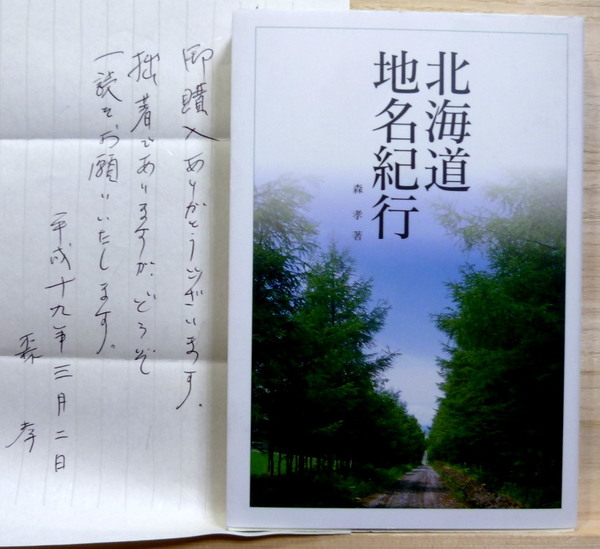 北海道
地名紀行
森 孝 著
御購入ありがとうございます。
拙著でありますが、どうぞ
一読をお願いいたします。
平成十九年三月二日
森 孝